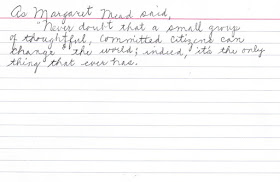 As Margaret Mead said,
"Never doubt that a small group
of thoughtful, committed citizens can
change the world; indeed, it's the only
thing that ever has.